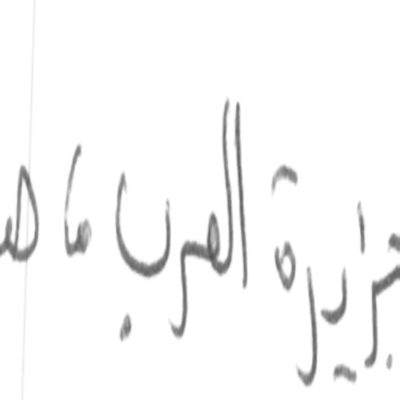 جزيرة العرب ما هـ